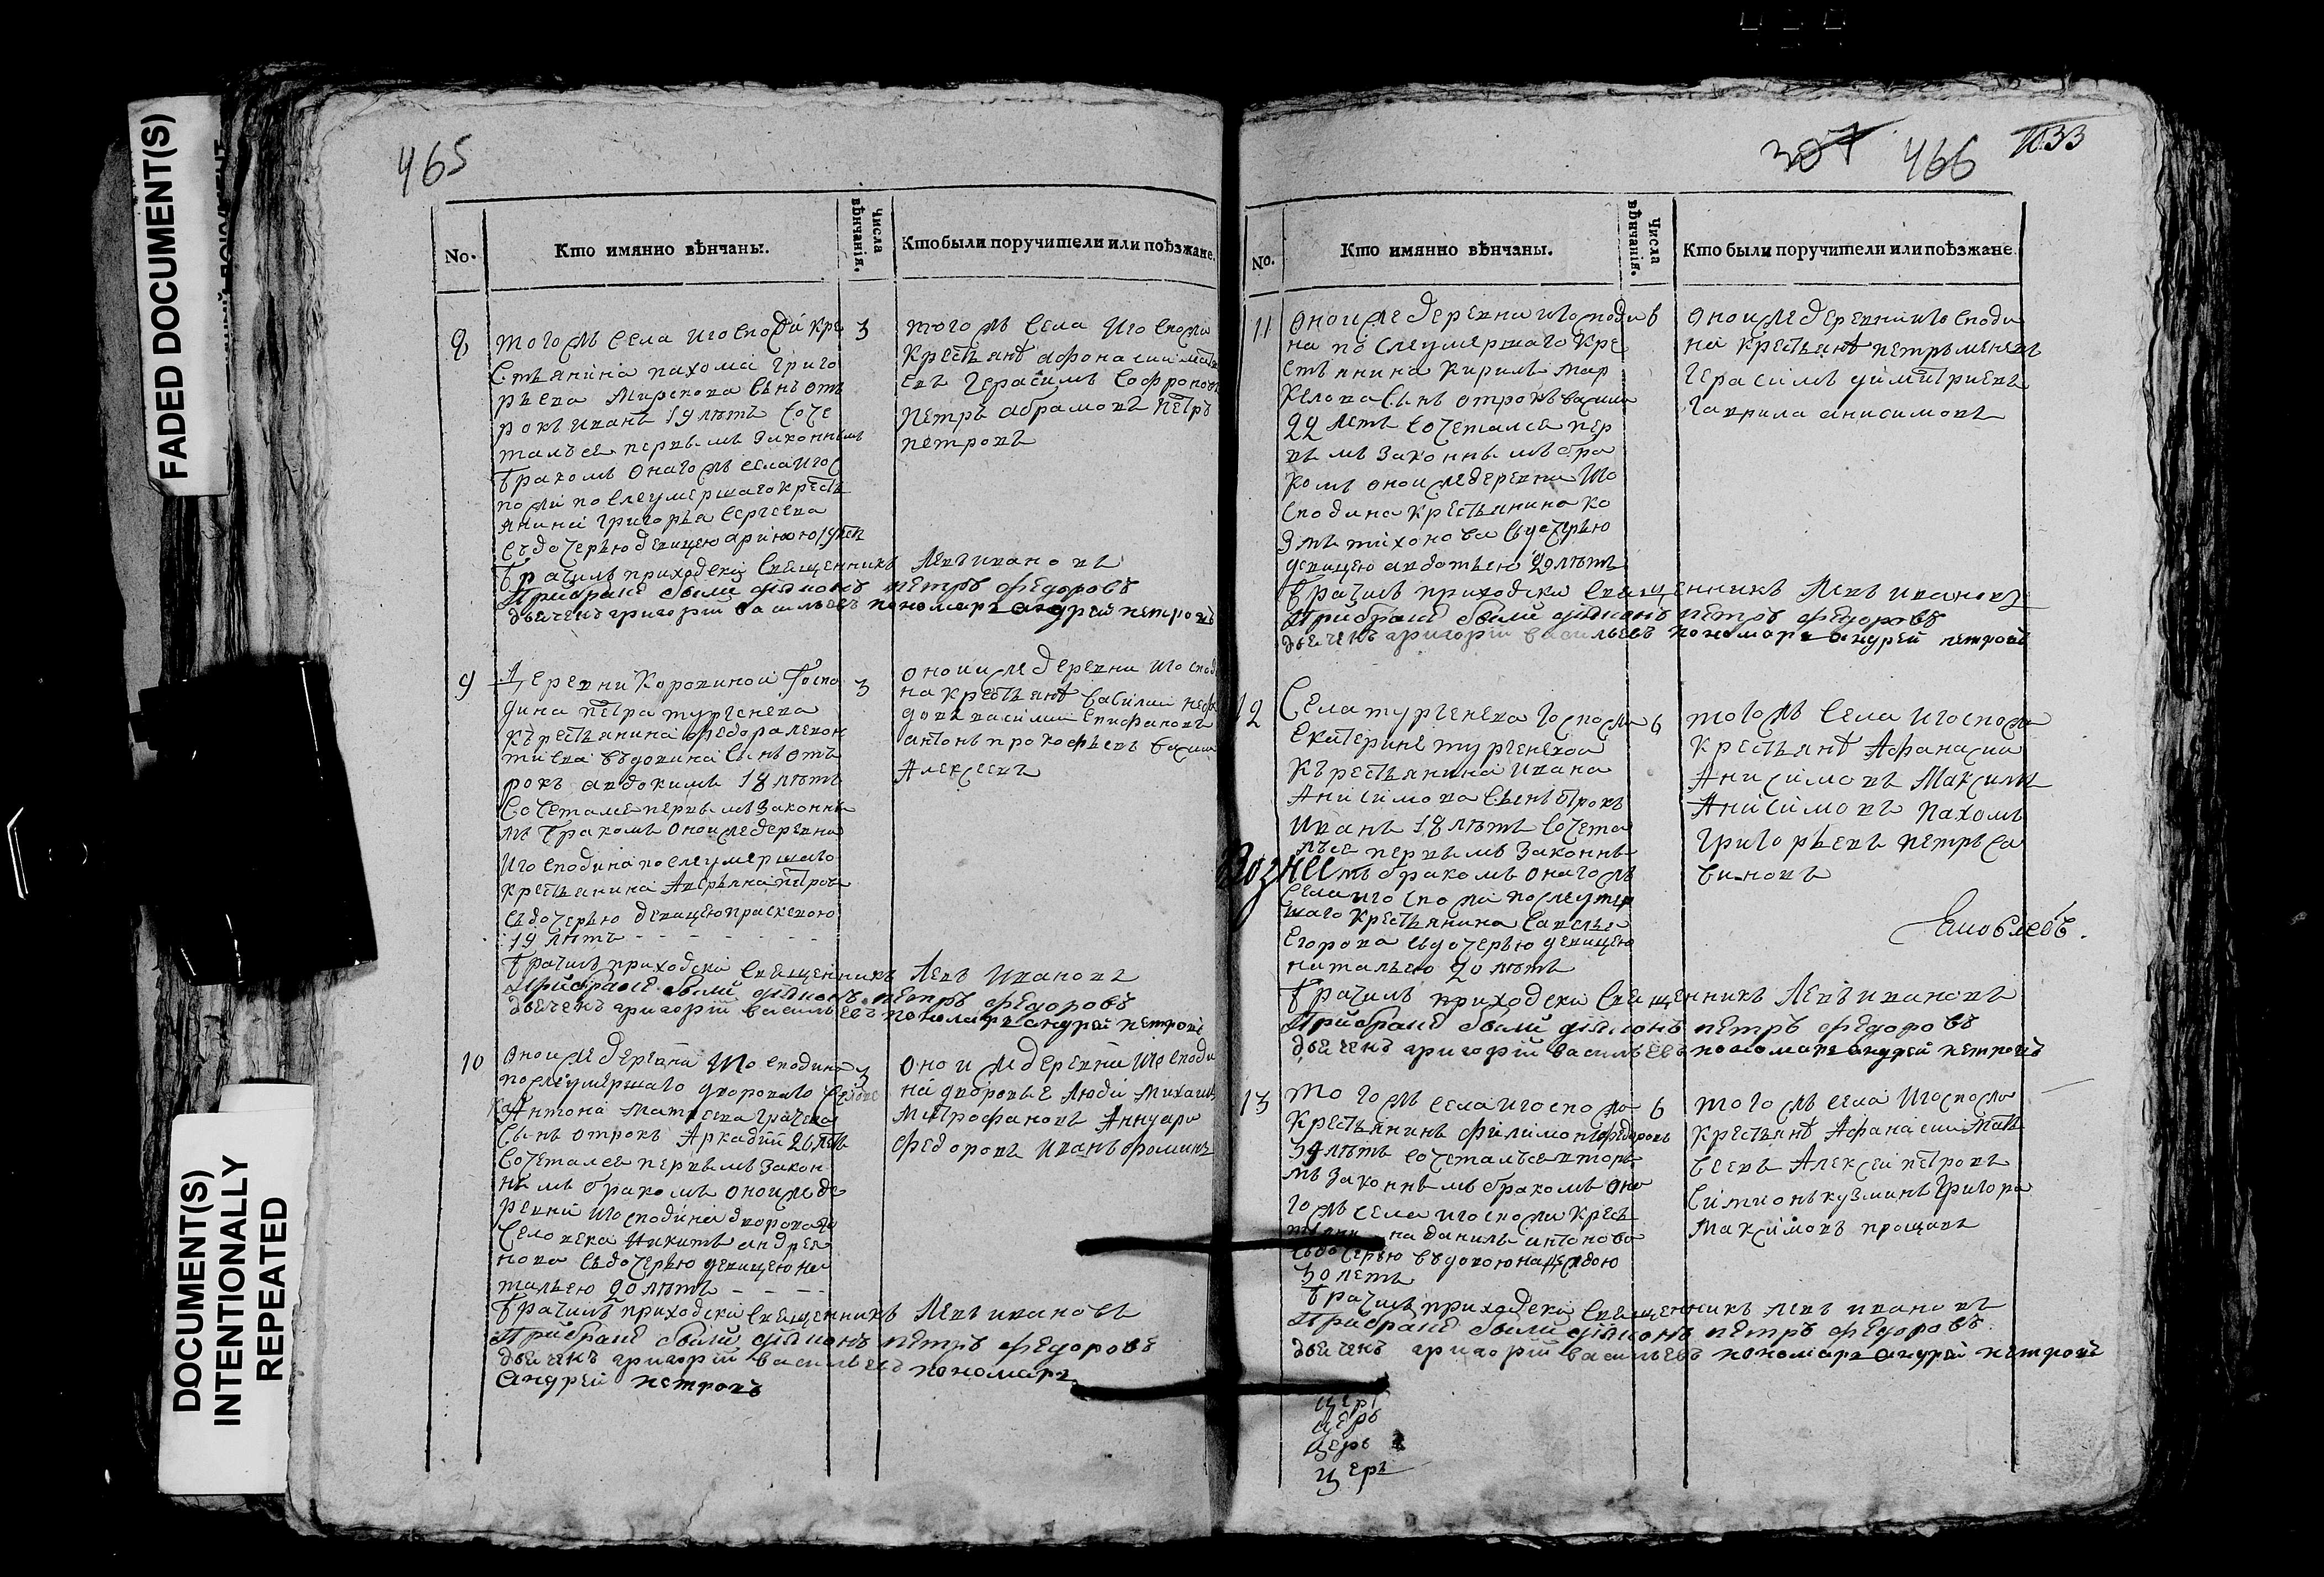 FADED DOCUMENT(S)
DOCUMENT(S)
INTENTIONALLY
REPEATED
465
No.
Кто имянно вѣнчаны.
Числа
вѣнчанія.
Кто были поручители или поѣзжане.
8
тогожъ села игоспожи кре
стьянина пахома григо
рьева сынъ отъ
рокъ иванъ 19 лѣтъ соче
талъсе первымъ законнымъ
бракомъ онагожъ села игос
пожи послеумершаго кресть
янина григорьа сергеева
съдочерью девицею 19 лѣтъ
3
тогожъ села игоспожи
крестьянѣ афонасии
герасимъ софроновъ
петръ абрамовъ петръ
петровъ
брачилъ приходски священникъ левъ ивановъ
Прибраке были діаконъ петръ федоровъ
дьячекъ григорій васильевъ пономарь андрей петровъ
9
Деревни Коровиной госпо
дина петра тургенева
кърестьянина федора леон
тиева въдовина сынъ отъ
рокъ авдокимъ 18 лѣтъ
сочеталсе первымъ законны
мъ бракомъ оноижедеревни
игосподина послеумершаго
крестьянина аверьяна петрова
съдочерью девицею праскевою
19 лѣтъ
3
оноижедеревни игоспод
на крестьянѣ василии
василии епифановъ
антонъ прокофьевъ
Алексеевъ
брачилъ приходски священникъ левъ ивановъ
Прибраке были діаконъ петръ федоровъ
дьячекъ григорій васильевъ пономарь андрей петровъ
10
оноижедеревни игосподина
послеумершаго двороваго
Антона матвеева
сынъ отрокъ Аркадий 26 летъ
сочеталсе первымъ закон
нымъ бракомъ оноижеде
ревни игосподина двороваго
человека никиты андрея
нова съдочерью девицею на
тальею 20 лѣтъ
3
оноижедеревни игосподи
на дворовые люди михаила
митрофановъ Аннуари
федоровъ иванъ фоминъ
брачилъ приходски священникъ левъ ивановъ
Прибраке были діаконъ петръ федоровъ
дьячекъ григорій васильевъ пономарь
андрей петровъ
307 466 1033
No.
Кто имянно вѣнчаны.
Числа
вѣнчанія.
Кто были поручители или поѣзжане.
11
оноижедеревни игосподи
на послеумершаго кре
стьянина кирилы мар
келова сынъ отрокъ
22 летъ сочеталсе пер
вымъ законнымъ бра
комъ оноижедеревни иго
сподина крестьянина ко
змы тихонова съдочерью
девицею авдотьею 20 лѣтъ
6
оноижедеревни игосподи
на крестьянѣ петръ
герасимъ димитриевъ
гаврила анисимовъ
брачилъ приходски священникъ левъ ивановъ
Прибраке были діаконъ петръ федоровъ
дьячекъ григорій васильевъ пономарь андрей петровъ
12
Села тургенева госпожи
екатерине тургеневои
кърестьянина ивана
Анисимова сынъ отрокъ
иванъ 18 лѣтъ сочета
лъсе первымъ законны
мъ бракомъ онагожъ
села игоспожи послеумер
шаго крестьянина савелья
егорова съдочерью девицею
натальею 20 лѣтъ
Вознес
6
тогожъ села игоспожи
крестьянѣ Афанасии
Анисимовъ Максимъ
Анисимовъ пахомъ
григорьевъ петръ са
виновъ
брачилъ приходски священникъ левъ ивановъ
Прибраке были діаконъ петръ федоровъ
дьячекъ григорій васильевъ пономарь андрей петровъ
13
тогожъ села игоспожи
крестьянинъ филимонъ федоровъ
34 лѣтъ сочеталъсе вторы
мъ законнымъ бракомъ она
гожъ села игоспожи кресть
на данилы антонова
съдочерью въдовою надеждою
30 летъ
6
тогожъ села игоспожи
крестьянѣ Афанасии Мат
веевъ Алексеи петровъ
симионъ кузминъ григора
максимовъ
брачилъ приходски священникъ левъ ивановъ
Прибраке были діаконъ петръ федоровъ
дьячекъ григорій васильевъ пономарь андрей петровъ
церъ
церъ
церъ
церъ